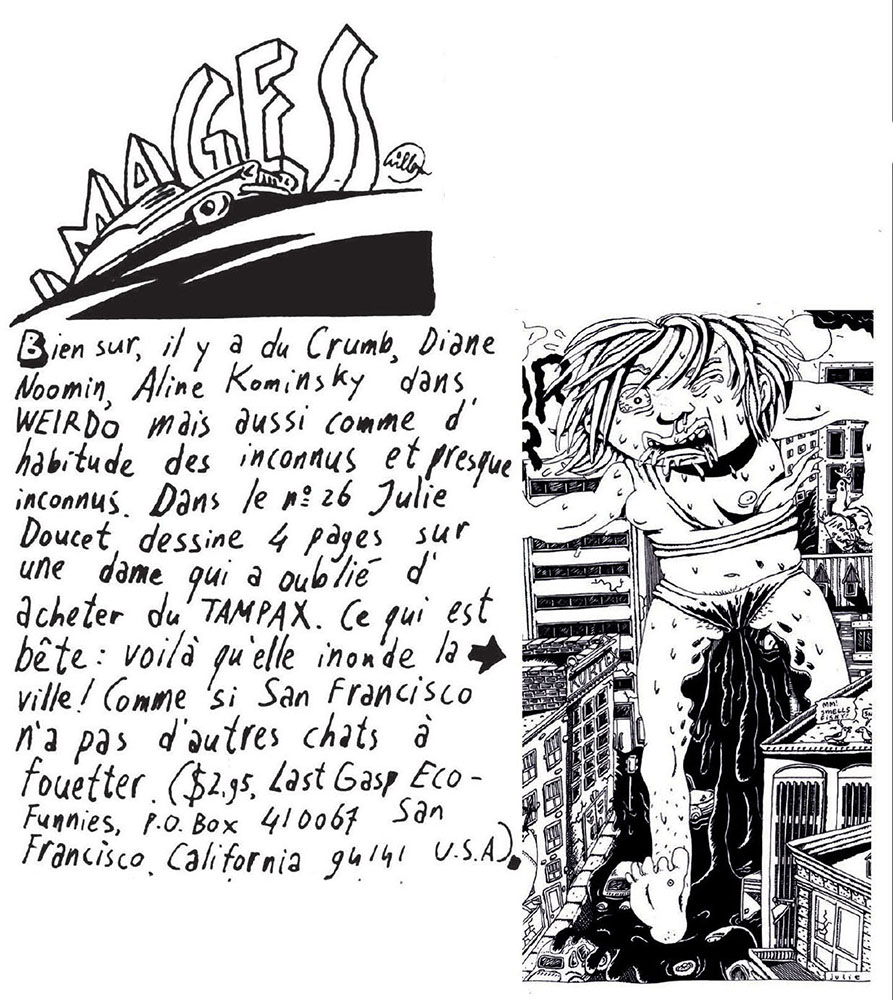 IMAGES
Willem
Bien sur, il y a du Crumb, Diane
Noomin, Aline Kominsky dans
WEIRDO mais aussi comme d'
habitude des inconnus et presque
inconnus. Dans le nº 26 Julie
Doucet dessine 4 pages sur
une dame qui a oublié d'
acheter du TAMPAX. Ce qui est
bête : voilà qu'elle inonde la
ville! Comme si San Francisco
n'a pas d'autres chats à
fouetter. ($2,95, Last Gasp Eco-
Funnies, P.O. Box 410067 San
Francisco, California 94141 U.S.A).
MM!
SMELLS
FISHY!
Julie